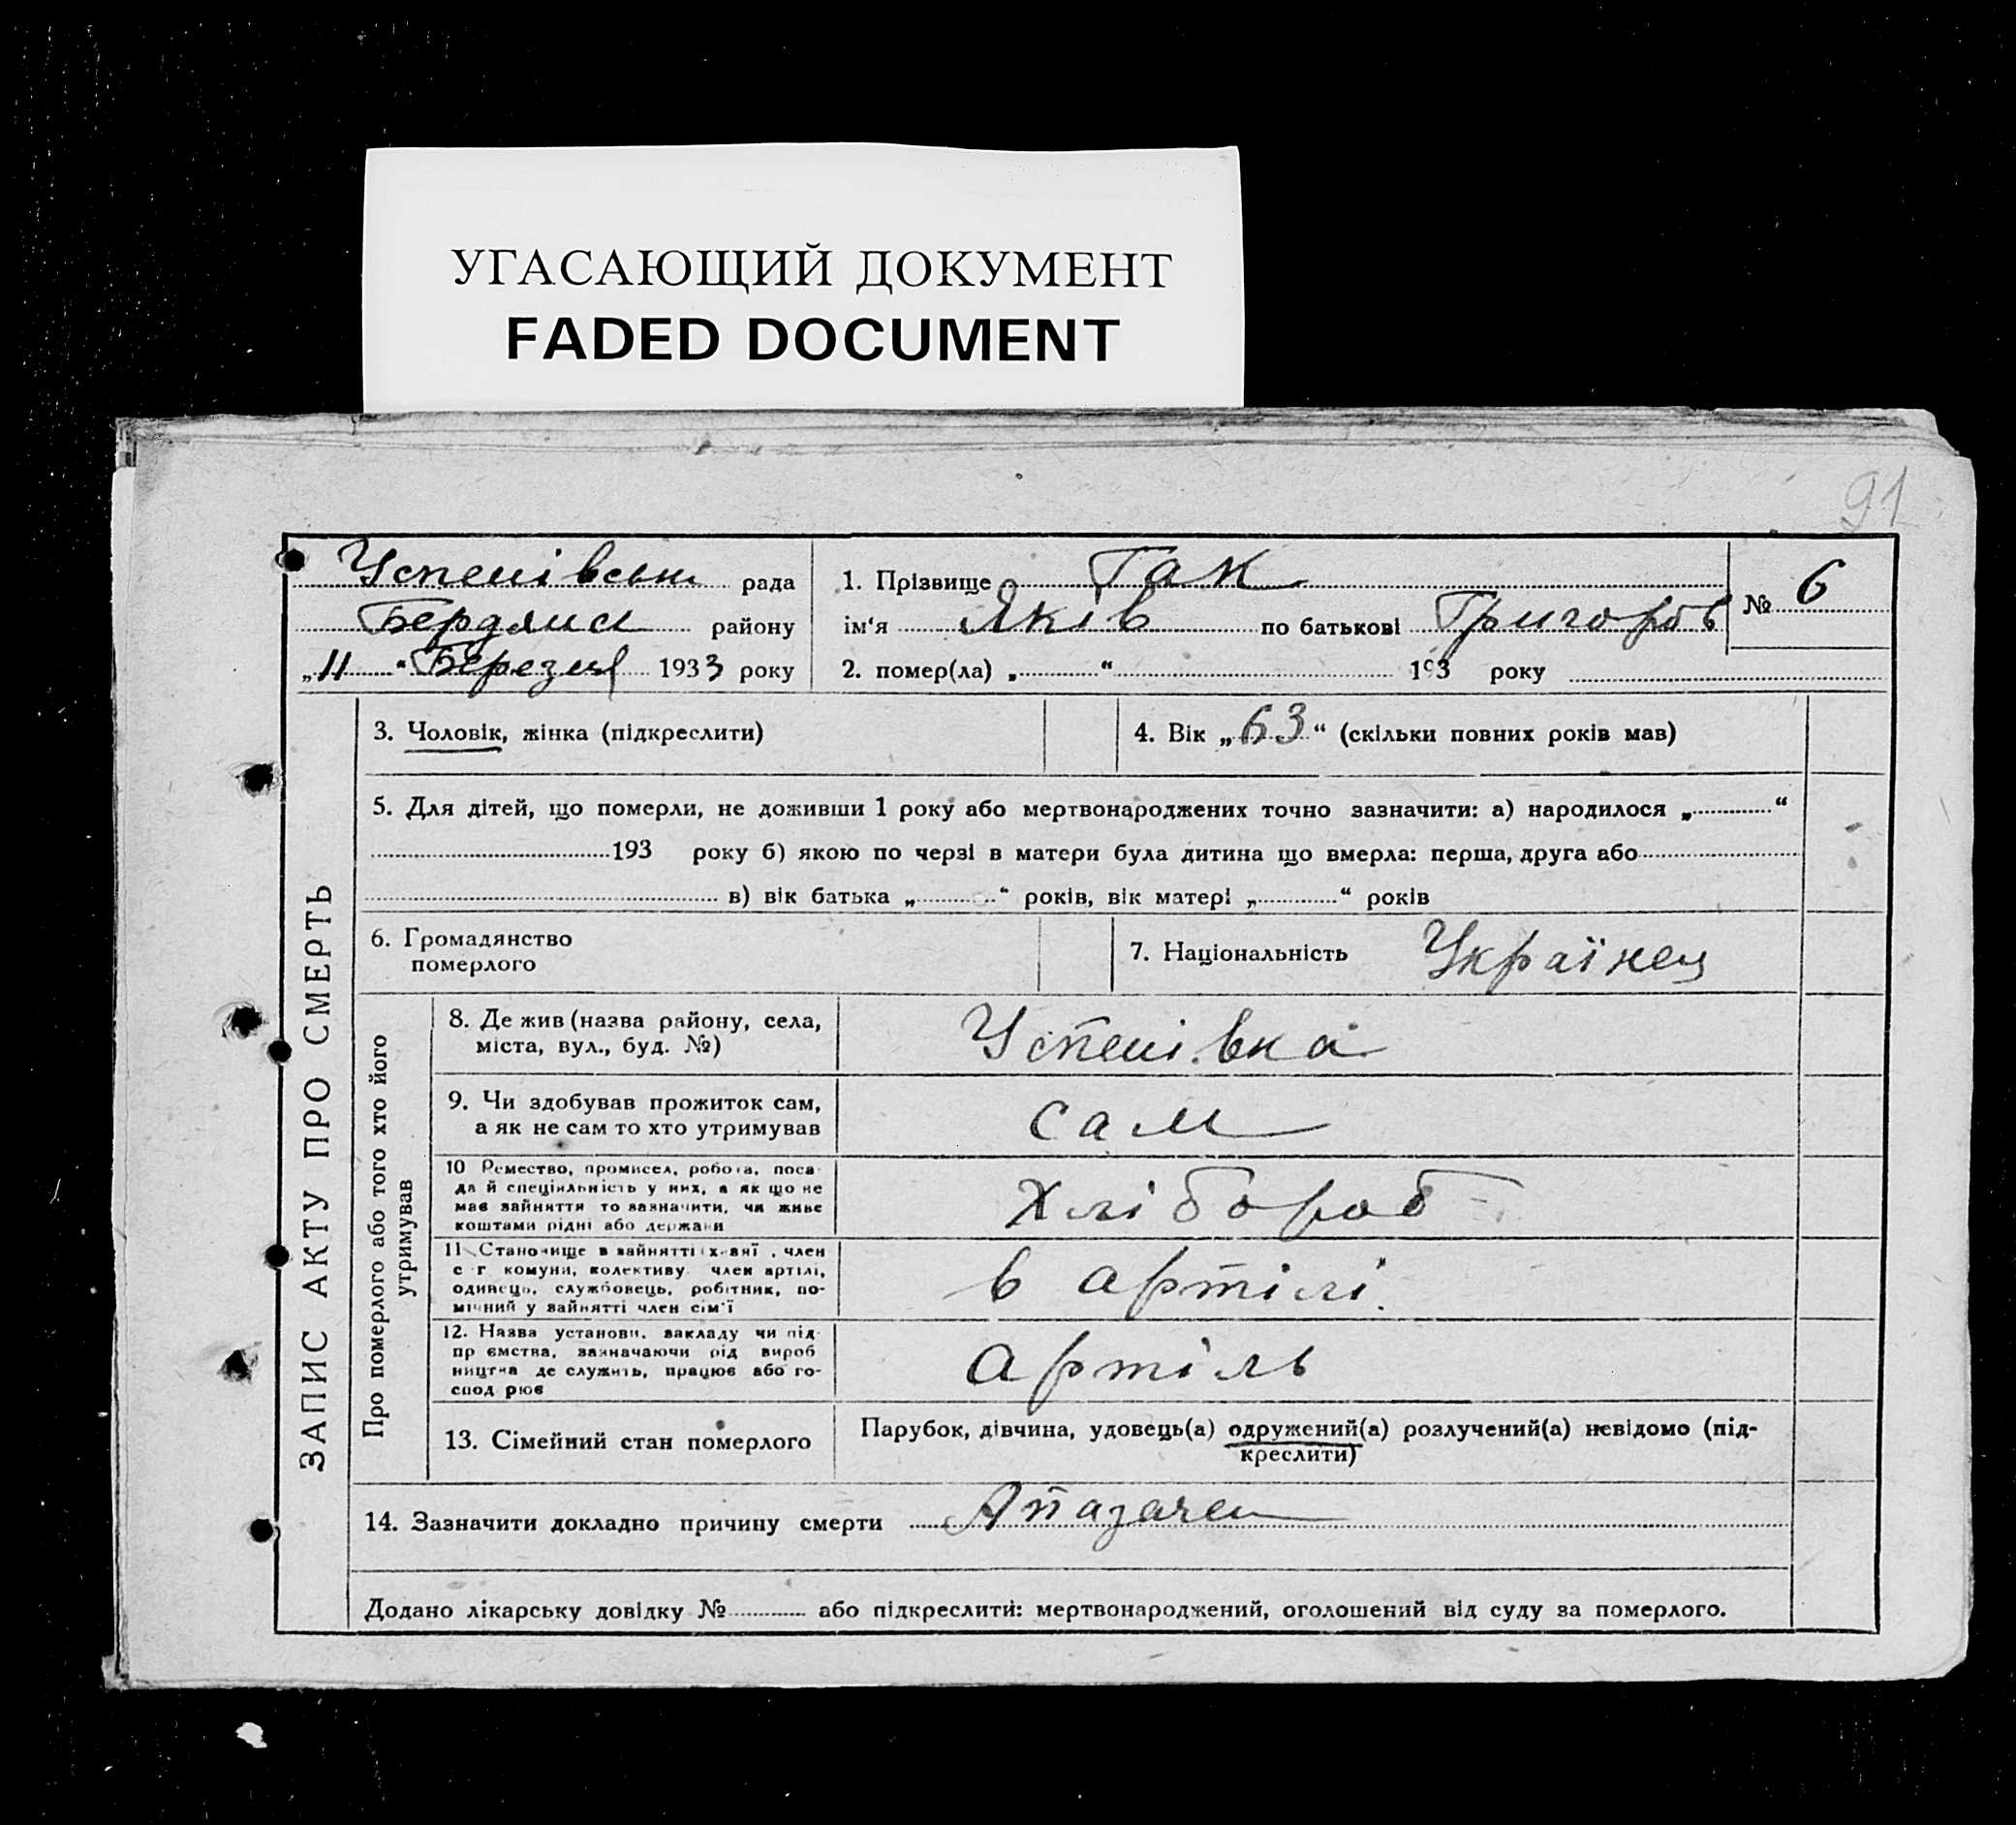 УГАСАЮЩИЙ ДОКУМЕНТ
FADED DOCUMENT
91
Успенівськ рада
Бердянс району
„11“ Березня 1933 року
1. Прізвище Гак
ім‘я Яків по батькові Григоров
№ 6
2. помер(ла) „ “ 193 року
ЗАПИС АКТУ ПРО СМЕРТЬ
3. Чоловік, жінка (підкреслити)
4. Вік „63“ (скільки повних років мав)
5. Для дітей, що померли, не доживши 1 року або мертвонароджених точно зазначити: а) народилося „ “
193 року б) якою по черзі в матери була дитина що вмерла: перша, друга або
в) вік батька „ “ років, вік матері „ “ років
6. Громадянство
померлого
7. Національність Українец
Про померлого або того хто його
утримував
8. Де жив (назва району, села,
міста, вул., буд. №)
Успенівка
9. Чи здобував прожиток сам,
а як не сам то хто утримував
сам
10 Ремество, промисел, робота, поса-
да й спеціяльність у них, а як що не
має зайняття то зазначити, чи живе
коштами рідні або держави
Хлібороб
11 Становище в зайнятті , член
с г комуни, колективу член артілі,
одинець, службовець, робітник, по-
мічний у зайнятті член сім'ї
в артілі
12. Назва установи, закладу чи під-
пр ємства, зазначаючи рід вироб
ництва де служить, працює або го-
спод рює
артіль
13. Сімейний стан померлого
Парубок, дівчина, удовець(а) одружений(а) розлучений(а) невідомо (під-
креслити)
14. Зазначити докладно причину смерти
Додано лікарську довідку № або підкреслити: мертвонароджений, оголошений від суду за померлого.